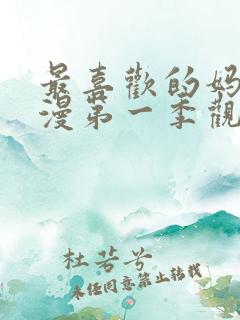 最喜歡的妈
漫第一季觀
杜若兮
未经同意禁止转载